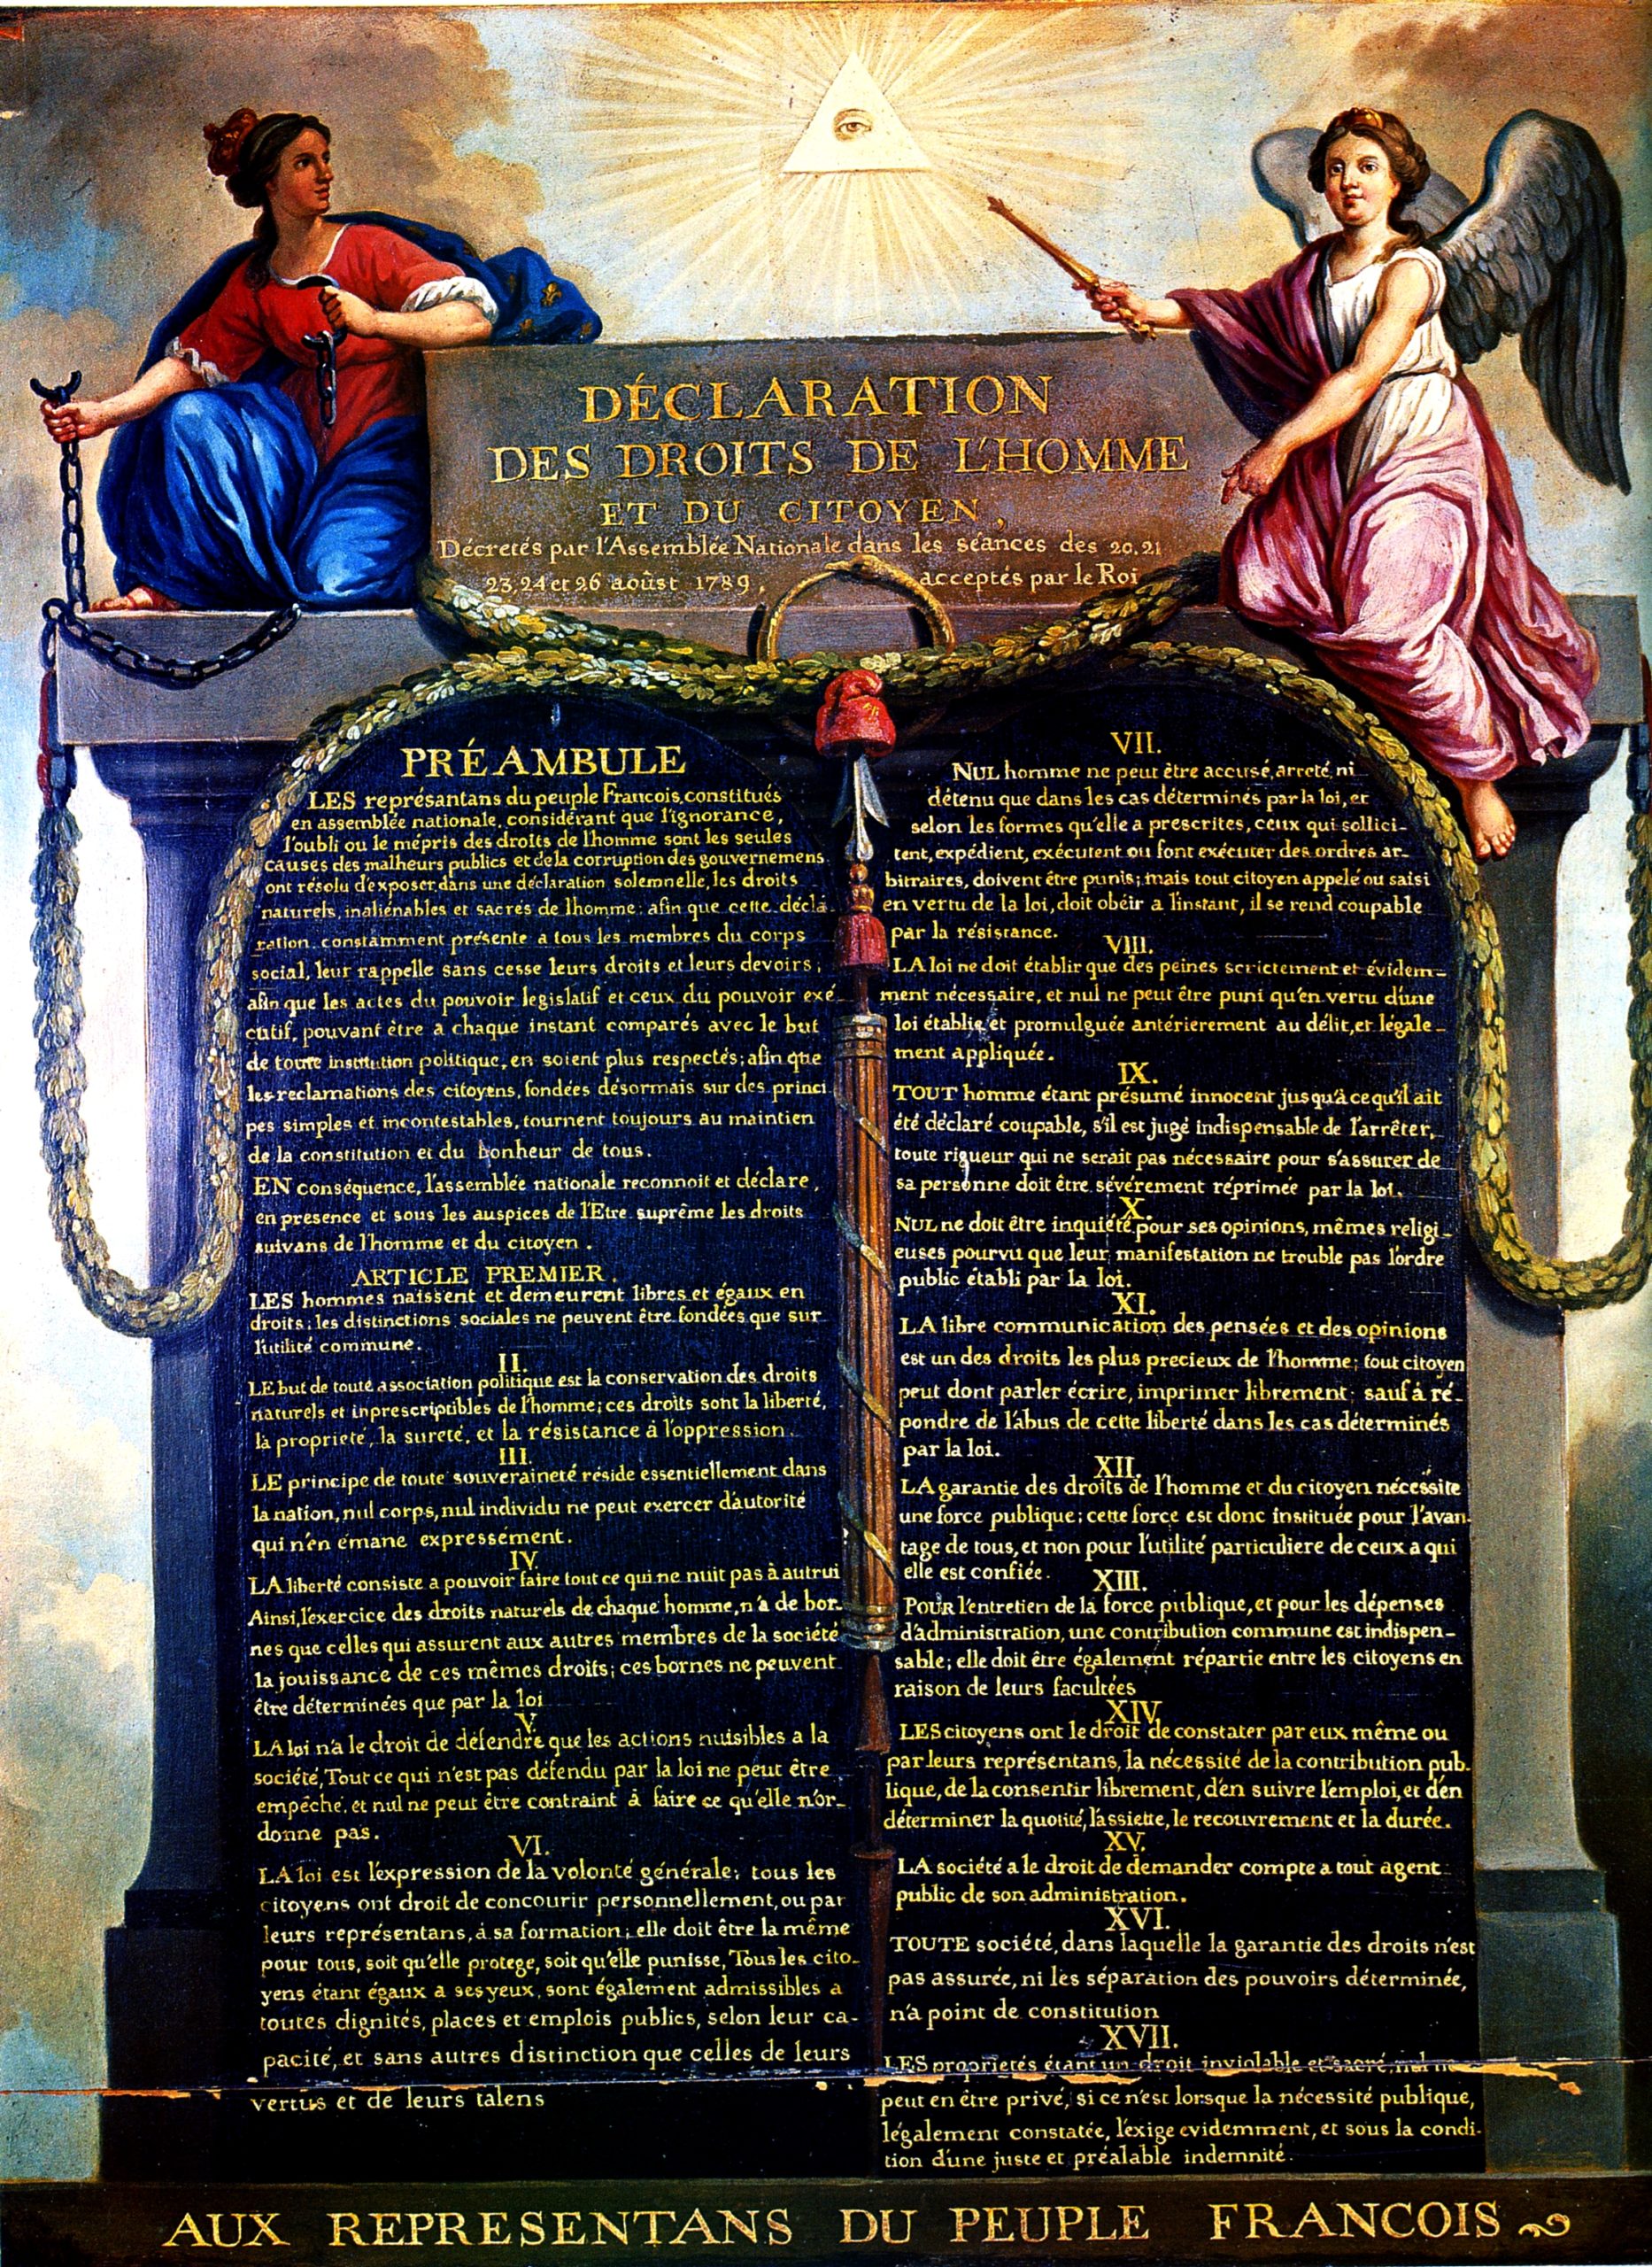 DÉCLARATION
DES DROITS DE L'HOMME
ET DU CITOYEN,
Décretés par l'Assemblée Nationale dans les séances des 20, 21
23, 24 et 26 aoûst 1789, acceptés par le Roi
PRÉAMBULE
LES représantans du peuple Francois, constitués
en assemblée nationale, considérant que l'ignorance,
l'oubli ou le mépris des droits de l'homme sont les seules
causes des malheurs publics et de la corruption des gouvernemens
ont résolu d'exposer, dans une déclaration solemnelle, les droits
naturels, inaliénables et sacrés de l'homme: afin que cette décla-
ration, constamment présente a tous les membres du corps
social, leur rappelle sans cesse leurs droits et leurs devoirs;
afin que les actes du pouvoir legislatif et ceux du pouvoir exé-
cutif, pouvant être a chaque instant comparés avec le but
de toute institution politique, en soient plus respectés; afin que
les reclamations des citoyens, fondées désormais sur des princi
pes simples et incontestables, tournent toujours au maintien
de la constitution et du bonheur de tous.
EN conséquence, l'assemblée nationale reconnoit et déclare,
en presence et sous les auspices de l'Etre suprême les droits
suivans de l'homme et du citoyen.
ARTICLE PREMIER.
LES hommes naissent et demeurent libres et égaux en
droits; les distinctions sociales ne peuvent être fondées que sur
l'utilité commune.
II.
LE but de toute association politique est la conservation des droits
naturels et inprescriptibles de l'homme; ces droits sont la liberté,
la propriété, la sureté, et la résistance à l'oppression.
III.
LE principe de toute souveraineté réside essentiellement dans
la nation, nul corps, nul individu ne peut exercer d'autorité
qui n'en émane expressément.
IV.
LA liberté consiste a pouvoir faire tout ce qui ne nuit pas à autrui
Ainsi, l'exercice des droits naturels de chaque homme, n'a de bor-
nes que celles qui assurent aux autres membres de la société
la jouissance de ces mêmes droits; ces bornes ne peuvent
être déterminées que par la loi
V.
LA loi n'a le droit de défendre que les actions nuisibles a la
société, Tout ce qui n'est pas défendu par la loi ne peut être
empêché, et nul ne peut être contraint à faire ce qu'elle n'or-
donne pas.
VI.
LA loi est l'expression de la volonté générale; tous les
citoyens ont droit de concourir personnellement, ou par
leurs représentans, à sa formation; elle doit être la même
pour tous, soit qu'elle protege, soit qu'elle punisse, Tous les cito-
yens étant égaux a ses yeux, sont également admissibles a
toutes dignités, places et emplois publics, selon leur ca-
pacité, et sans autres distinction que celles de leurs
vertus et de leurs talens
VII.
NUL homme ne peut être accusé, arreté, ni
détenu que dans les cas déterminés par la loi, et
selon les formes qu'elle a prescrites, ceux qui sollici-
tent, expédient, exécutent ou font exécuter des ordres ar-
bitraires, doivent être punis; mais tout citoyen appelé ou saisi
en vertu de la loi, doit obéir a l'instant, il se rend coupable
par la résistance.
VIII.
LA loi ne doit établir que des peines strictement et évidem-
ment nécessaire, et nul ne peut être puni qu'en vertu d'une
loi établie et promulguée antérierement au délit, et légale-
ment appliquée.
IX.
TOUT homme étant présumé innocent jusqu'à ce qu'il ait
été déclaré coupable, s'il est jugé indispensable de l'arrêter,
toute rigueur qui ne serait pas nécessaire pour s'assurer de
sa personne doit être sévérement réprimée par la loi.
X.
NUL ne doit être inquiété pour ses opinions, mêmes religi-
euses pourvu que leur manifestation ne trouble pas l'ordre
public établi par la loi.
XI.
LA libre communication des pensées et des opinions
est un des droits les plus precieux de l'homme; tout citoyen
peut dont parler écrire, imprimer librement; sauf à ré-
pondre de l'abus de cette liberté dans les cas déterminés
par la loi.
XII.
LA garantie des droits de l'homme et du citoyen nécessite
une force publique; cette force est donc instituée pour l'avan-
tage de tous, et non pour l'utilité particuliere de ceux a qui
elle est confiée.
XIII.
POUR l'entretien de la force publique, et pour les dépenses
d'administration, une contribution commune est indispen-
sable; elle doit être également répartie entre les citoyens en
raison de leurs facultées
XIV.
LES citoyens ont le droit de constater par eux même ou
par leurs représentans, la nécessité de la contribution pub-
lique, de la consentir librement, d'en suivre l'emploi, et d'en
déterminer la quotité, l'assiette, le recouvrement et la durée.
XV.
LA société a le droit de demander compte a tout agent
public de son administration.
XVI.
TOUTE société, dans laquelle la garantie des droits n'est
pas assurée, ni les séparation des pouvoirs déterminée,
n'a point de constitution
XVII.
LES proprietés étant un droit inviolable et sacré, nul ne
peut en être privé, si ce n'est lorsque la nécessité publique,
légalement constatée, l'exige evidemment, et sous la condi-
tion d'une juste et préalable indemnité.
AUX REPRESENTANS DU PEUPLE FRANCOIS